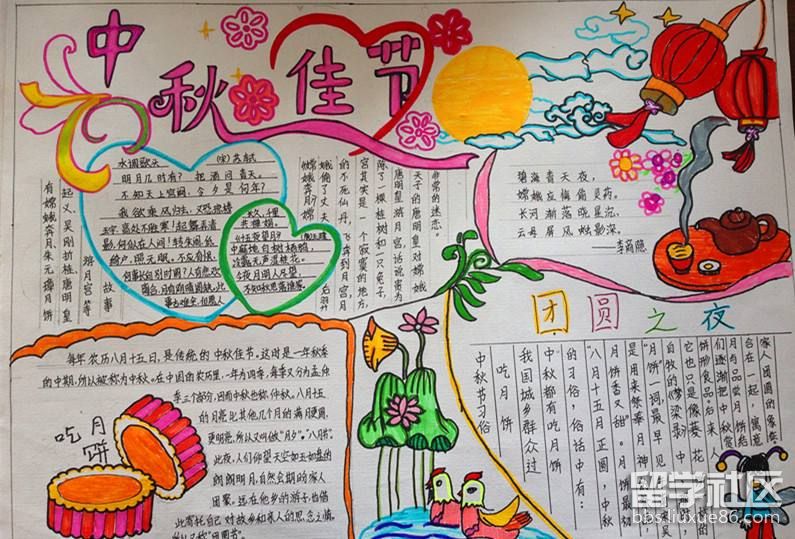 中秋佳节
水调歌头 (宋)苏轼
明月几时有？把酒问青天。
不知天上宫阙，今夕是何年？
我欲乘风归去，又恐琼楼
玉宇，高处不胜寒！起舞弄清
影，何似在人间！转朱阁，低
绮户，照无眠。不应有恨，
何事长向别时圆？人有悲欢
离合，月有阴晴圆缺，此
事古难全。但愿人
长久，千里
共婵娟。
中庭地白树栖鸦，
冷露无声湿桂花。
今夜月明人尽望，
不知秋思落谁家。
有嫦娥奔月、朱元璋月饼
起义、吴刚折桂、唐明皇
游月宫等
故事
碧海青天夜，
嫦娥应悔偷灵药。
长河渐落晓星沉，
云母屏风烛影深。
李商隐
每年农历八月十五日，是传统的中秋佳节。这时是一年秋季
的中期，所以被称为中秋。在中国的农历里，一年分为四季，每季又分为孟仲
季三个部分，因而中秋也称仲秋。八月十五
的月亮比其他几个月的满月更圆，
更明亮，所以又叫做“月夕”，“八月节”。
此夜，人们仰望天空如玉如盘的
朗朗明月，自然会期盼家人
团聚。远在他乡的游子，也借
此寄托自己对故乡和亲人的思念之情。
所以，中秋又称“团圆节”。
吃月饼
团圆之夜
中秋节习俗
吃月饼
我国城乡群众过
中秋都有吃月饼
的习俗，俗话中有：
“八月十五月正圆，中秋
月饼香又甜”。月饼最初
是用来祭奉月神
“月饼”一词，最早见
自牧的《梦梁录》中
它也只是像菱花
饼形食品后来人
们逐渐把中秋赏
月与品尝月饼结
合在一起，寓意
家人团圆的象征
留学社区
bbs.liuxue86.com